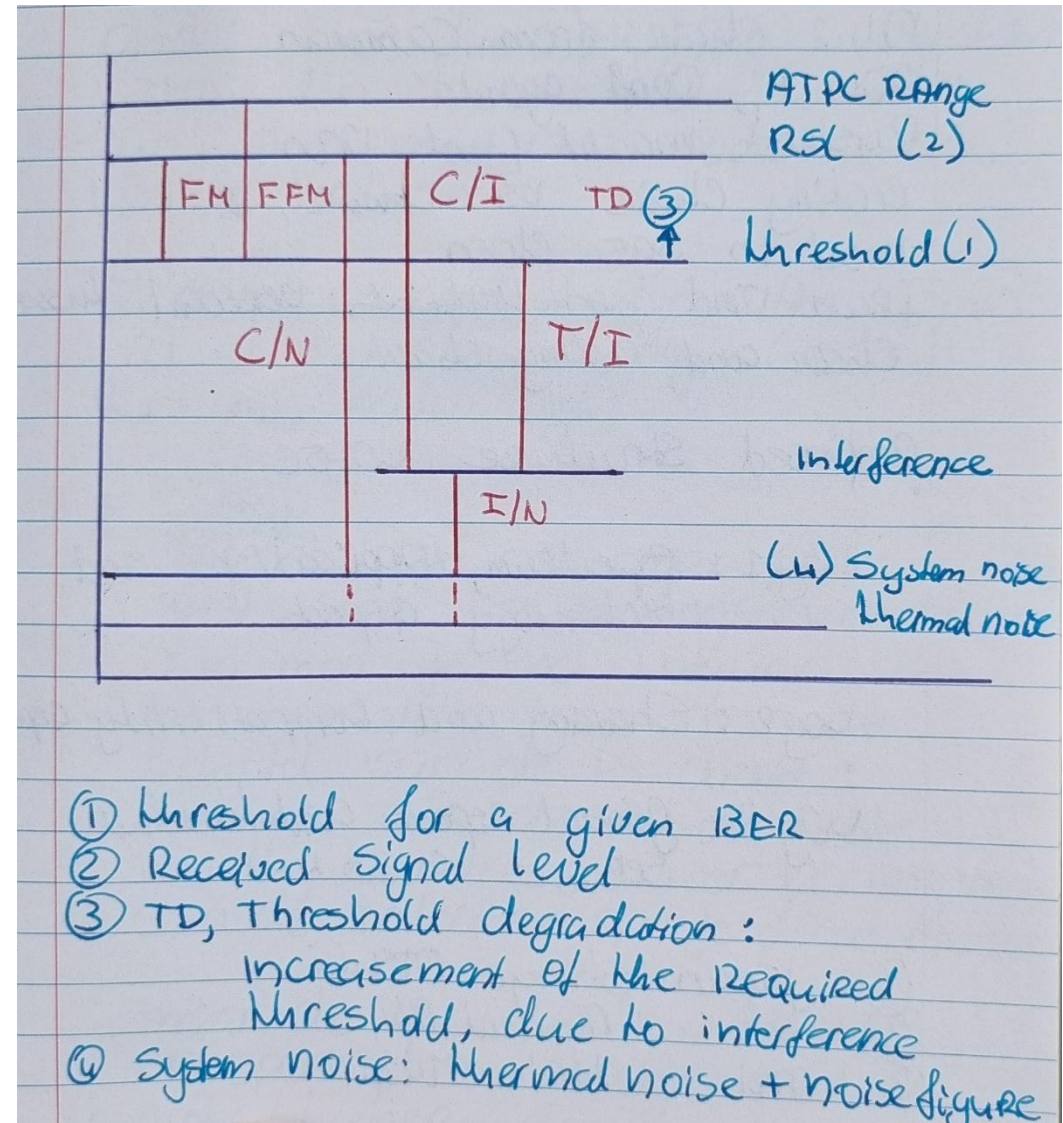 ATPC Range
RSL (2)
FM FFM C/I TD ③
threshold (1)
C/N T/I
interference
I/N
(4) System noise
thermal noise
① threshold for a given BER
② Received signal level
③ TD, Threshold degradation :
increasement of the Required
threshold, due to interference
④ System noise: thermal noise + noise figure